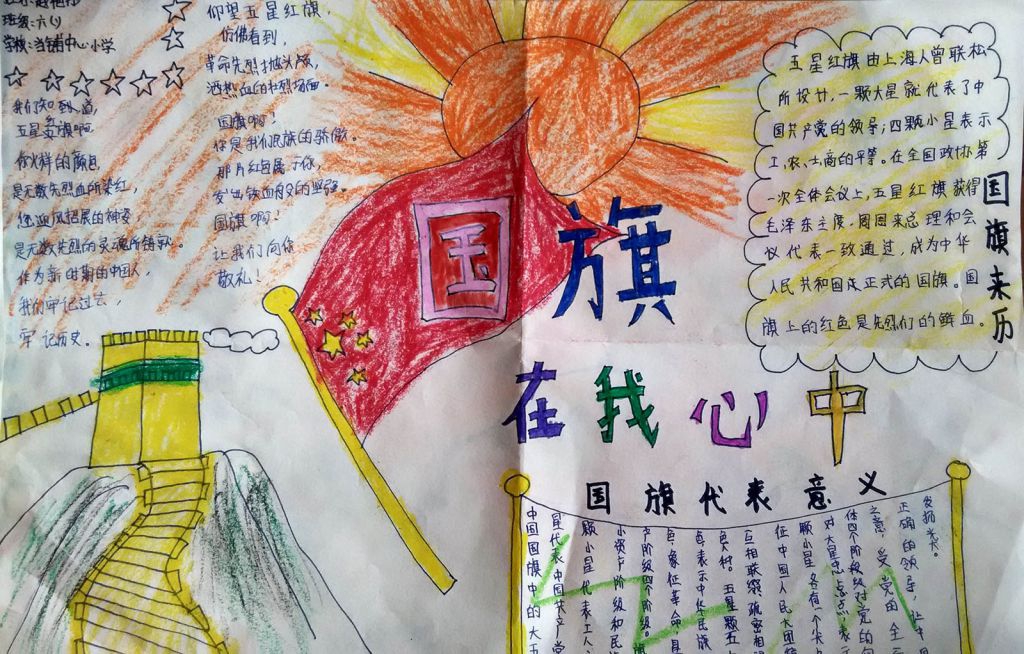 班级:六(1)
学校:当铺中心小学
我们知道,
五星红旗啊
你火样的颜色
是无数先烈血所染红,
您迎风招展的神姿
是无数先烈的灵魂所铸就。
作为新时期的中国人,
我们牢记过去,
牢记历史。
仰望五星红旗,
仿佛看到,
革命先烈抛头颅,
洒热血的壮烈场面。
国旗啊!
你是我们民族的骄傲。
那片红色属于你,
发出铁血丹
国旗啊!
让我们向你
敬礼!
国旗
在我心中
国旗来历
五星红旗由上海人曾联松
所设计,一颗大星就代表了中
国共产党的领导;四颗小星表示
工、农、士、商的平等。在全国政协第
一次全体会议上,五星红旗获得
毛泽东主度、周恩来总理和会
议代表一致通过,成为中华
人民共和国正式的国旗。国
旗上的红色是先烈们的鲜血。
国旗代表意义
中国国旗中的大五
星代表中国共产党
颗小星代表工人、
小资产阶级和民
产阶级四个阶级。旗
色,象征革命,
色,表示中华民族
色人种。五星
互相联络,疏密相
征中国人民大团结
颗小星各有一个尖
对大星中心点,表示
体四个阶级对党的
之意,受党的全
正确的领导,让中
发扬光大。